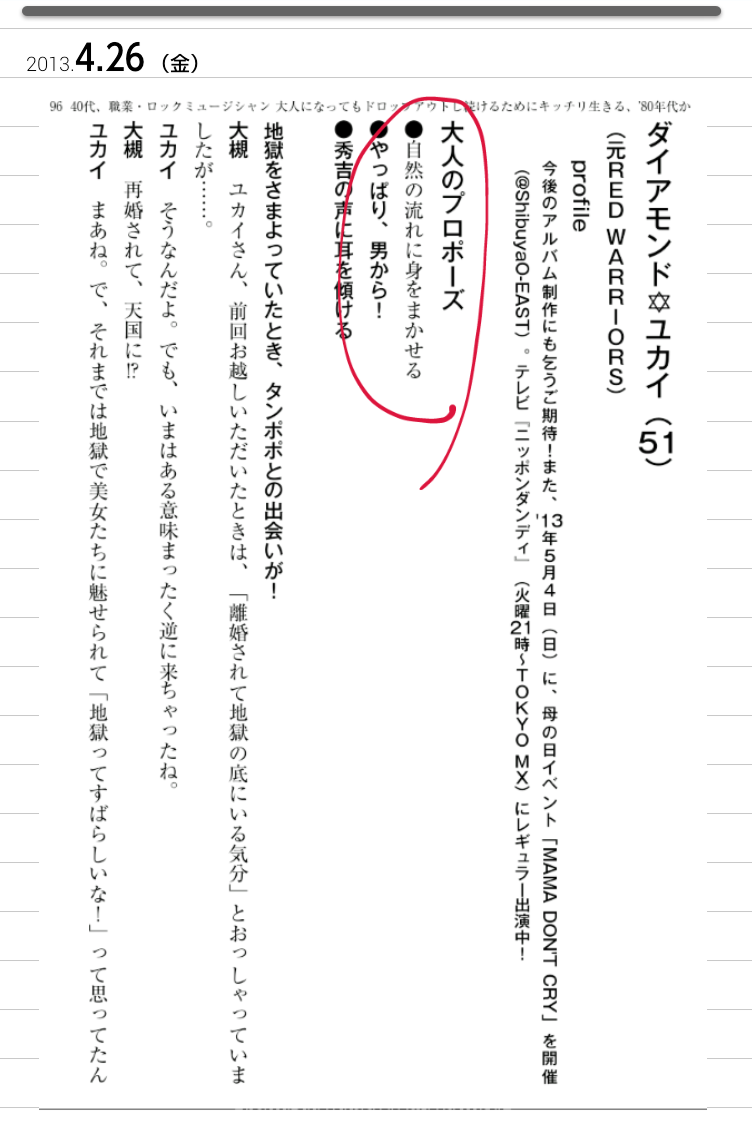 2013.4.26（金）
96 40代、職業・ロックミュージシャン 大人になってもドロップアウトし続けるためにキッチリ生きる、'80年代か
ダイアモンド✡ユカイ（51）
（元RED WARRIORS）
profile
今後のアルバム制作にも乞うご期待！また、'13年5月4日（日）に、母の日イベント「MAMA DON'T CRY」を開催
（@ShibuyaO-EAST）。テレビ『ニッポンダンディ』（火曜21時〜TOKYO MX）にレギュラー出演中！
大人のプロポーズ
●自然の流れに身をまかせる
●やっぱり、男から！
●秀吉の声に耳を傾ける
地獄をさまよっていたとき、タンポポとの出会いが！
大槻　ユカイさん、前回お越しいただいたときは、「離婚されて地獄の底にいる気分」とおっしゃっていま
したが……。
ユカイ　そうなんだよ。でも、いまはある意味まったく逆に来ちゃったね。
大槻　再婚されて、天国に!?
ユカイ　まあね。で、それまでは地獄で美女たちに魅せられて「地獄ってすばらしいな！」って思ってたん